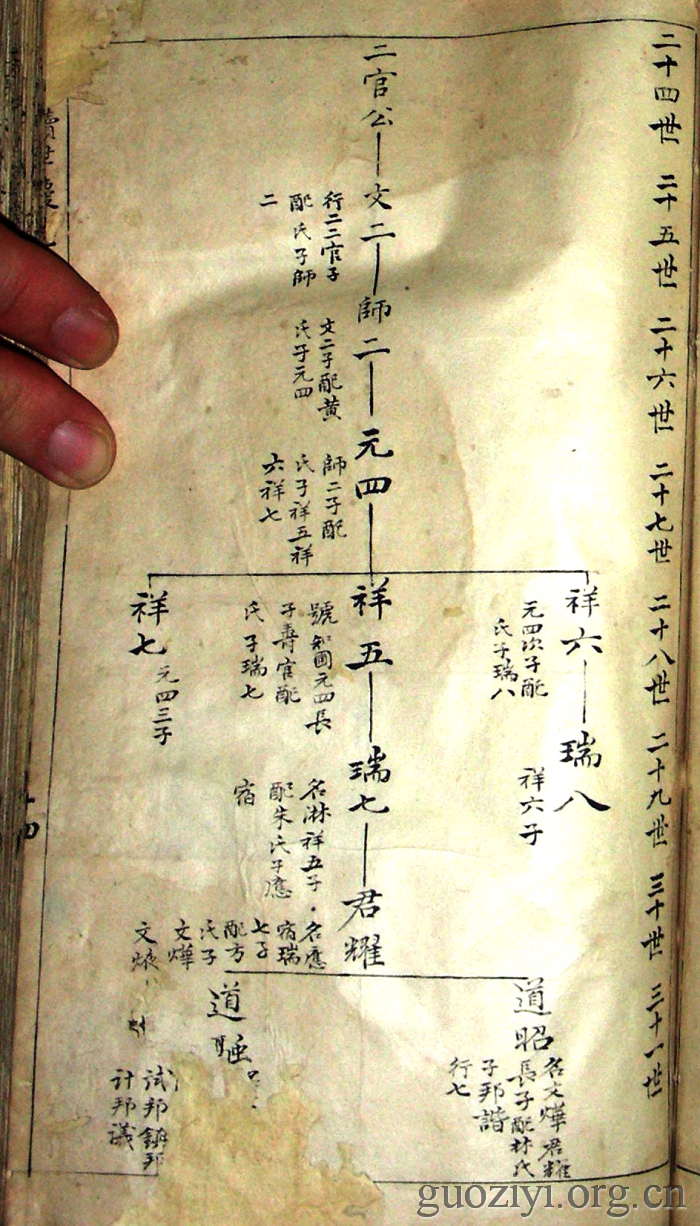 二十四世
二十五世
二十六世
二十七世
二十八世
二十九世
三十世
三十一世
二官公
文二
行二二官子
配氏子師
二
師二
文二子配黄
氏子元四
元四
師二子配
氏子祥五祥
六祥七
祥六
元四次子配
氏子瑞八
瑞八
祥六子
祥五
號知圃元四長
子壽官配
氏子瑞七
瑞七
名淋祥五子
配朱氏子應
宿
君耀
名應
宿瑞
七子
配方
氏子
文燁
文
祥七
元四三子
道昭
名文燁君耀
長子配林氏
子邦諧
行七
道
試邦鎮邦
計邦議
guoziyi.org.cn